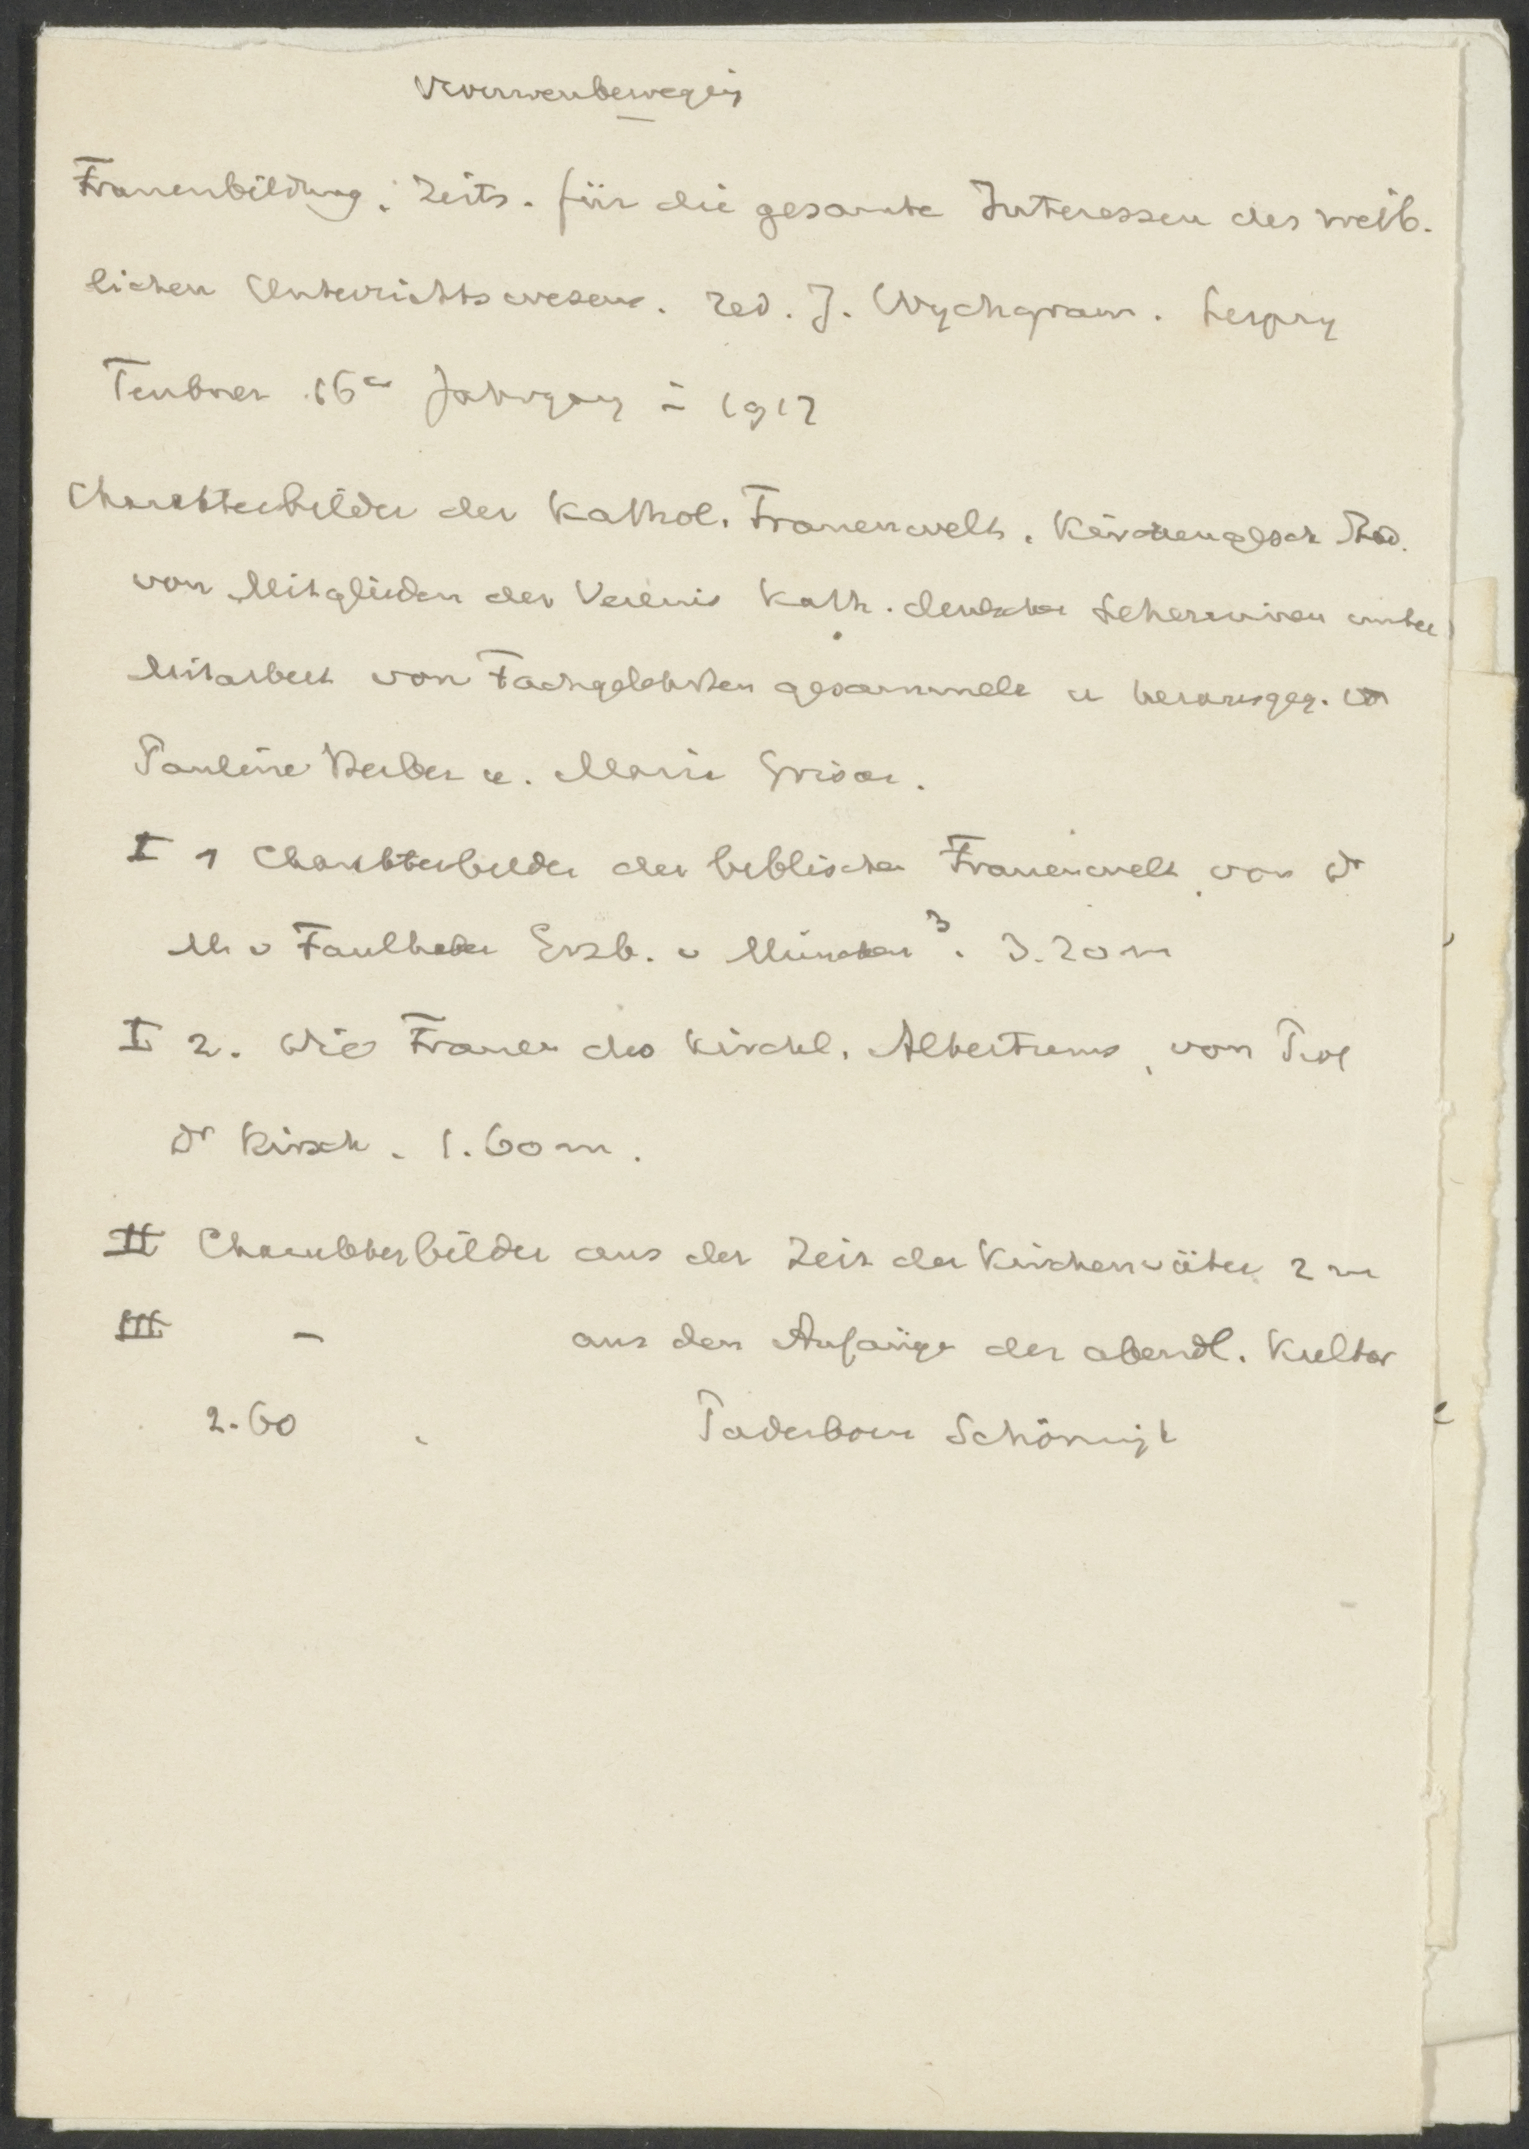 Vrouwenbeweging
Frauenbildung. Zeits. für die gesamte Interessen des weib-
lichen Unterrichtswesens. red. J. Wychgram. Leipzig
Teubner 16e Jahrgang = 1917
Charakterbilder der kathol. Frauenwelt.
von Mitgliedern der Vereins kath. deutscher Lehrerinnen unter
Mitarbeit von Fachgelehrten gesammelt u herausgeg. von
Pauline Herber u. Maria Grisar.
I 1 Charakterbilder der biblischen Frauenwelt von Dr
M v Faulhaber Erzb. v München 3. 3.20 m
I 2. Die Frauen des kirchl. Altertums, von Prof
Dr Kirsch. 1.60 m.
II Charakterbilder aus der Zeit der Kirchenväter 2 m
III — aus den Anfänge der abendl. Kultur
2.60 Paderborn Schöningh